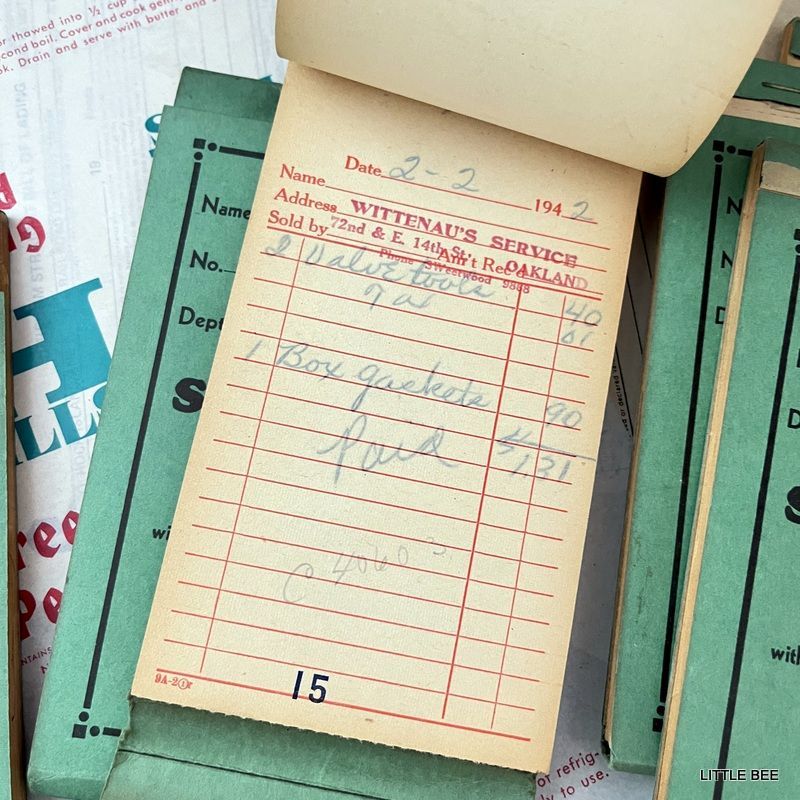 or thawed into ½ cup
cond boil. Cover and cook gent
ok. Drain and serve with butter and s
H
ILLS
Name
No.
Dept
S
wi
Date 2-2 1942
Name
Address WITTENAU'S SERVICE
Sold by 72nd & E. 14th St., OAKLAND
Am't Rec'd
Phone SWeetwood 9868
2 Valve tools 40
Tax 01
1 Box gaskets 90
Paid $1.31
C 40603
9A-2
15
D
S
with
or refrig-
ly to use.
LITTLE BEE